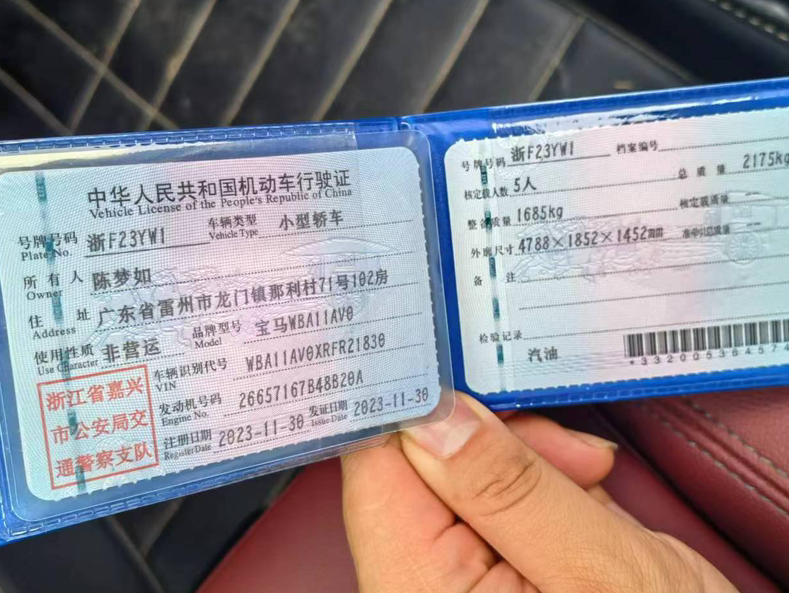 中华人民共和国机动车行驶证
Vehicle License of the People's Republic of China
号牌号码 浙F23YW1 车辆类型 小型轿车
Plate No. Vehicle Type
所有人 陈梦如
Owner
住址 广东省雷州市龙门镇那利村71号102房
Address
使用性质 非营运 品牌型号 宝马WBA11AV0
Use Character Model
浙江省嘉兴
市公安局交
通警察支队
车辆识别代号 WBA11AV0XRFR21830
VIN
发动机号码 26657167B48B20A
Engine No.
注册日期 2023-11-30 发证日期 2023-11-30
Register Date Issue Date
号牌号码 浙F23YW1 档案编号
核定载人数 5人 总质量 2175kg
整备质量 1685kg 核定载质量
外廓尺寸 4788×1852×1452mm
备注
检验记录
汽油